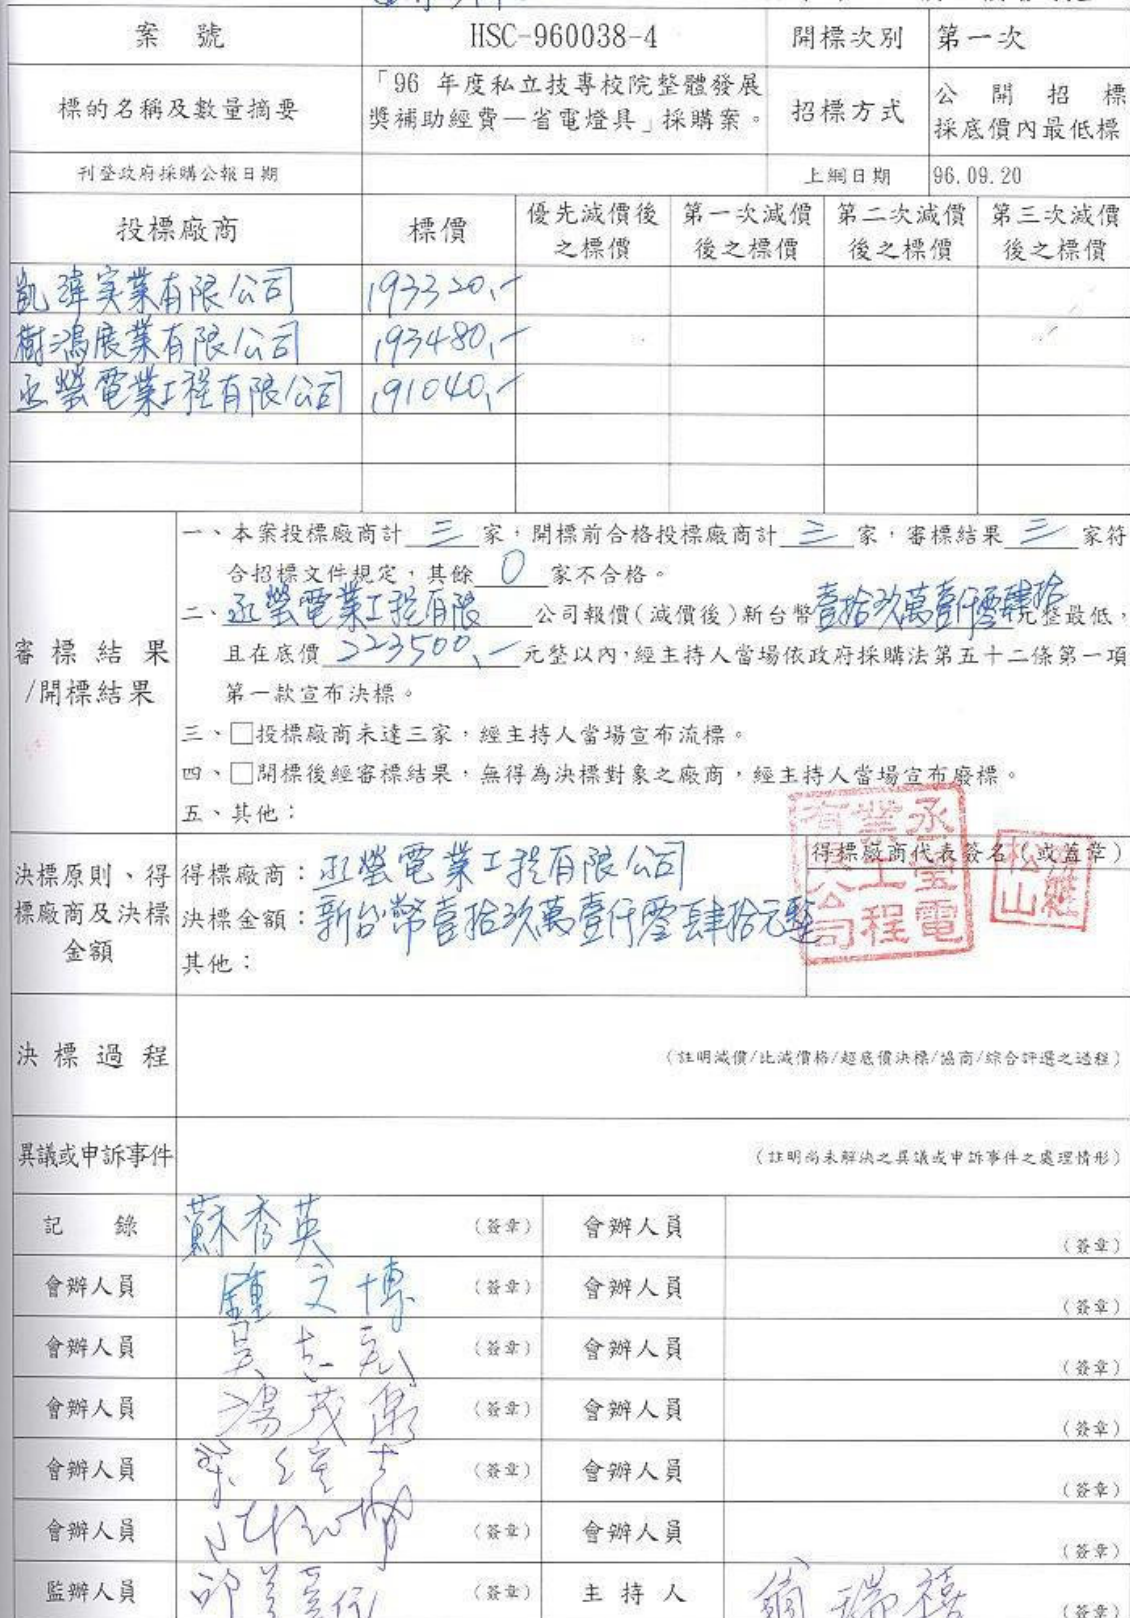 案 號 HSC-960038-4 開標次別 第一次
標的名稱及數量摘要 「96 年度私立技專校院整體發展獎補助經費—省電燈具」採購案。 招標方式 公開招標採底價內最低標
刊登政府採購公報日期 上網日期 96.09.20
投標廠商 標價 優先減價後之標價 第一次減價後之標價 第二次減價後之標價 第三次減價後之標價
凱瑋実業有限公司 193320.-
樹鴻展業有限公司 193480.-
丞瑩電業工程有限公司 191040.-
審標結果/開標結果
一、本案投標廠商計 三 家，開標前合格投標廠商計 三 家，審標結果 三 家符
合招標文件規定，其餘 0 家不合格。
二、丞瑩電業工程有限 公司報價(減價後)新台幣壹拾玖萬壹仟零肆拾元整最低，
且在底價 223500.- 元整以內，經主持人當場依政府採購法第五十二條第一項
第一款宣布決標。
三、□投標廠商未達三家，經主持人當場宣布流標。
四、□開標後經審標結果，無得為決標對象之廠商，經主持人當場宣布廢標。
五、其他：
決標原則、得標廠商及決標金額
得標廠商：丞瑩電業工程有限公司
決標金額：新台幣壹拾玖萬壹仟零肆拾元整
其他：
得標廠商代表簽名（或蓋章）
丞瑩電業工程有限公司
松山
決標過程 （註明減價/比減價格/超底價決標/協商/綜合評選之過程）
異議或申訴事件 （註明尚未解決之異議或申訴事件之處理情形）
記 錄 蘇秀英 （簽章） 會辦人員 （簽章）
會辦人員 鍾文博 （簽章） 會辦人員 （簽章）
會辦人員 吳志 （簽章） 會辦人員 （簽章）
會辦人員 湯茂 （簽章） 會辦人員 （簽章）
會辦人員 （簽章） 會辦人員 （簽章）
會辦人員 （簽章） 會辦人員 （簽章）
監辦人員 （簽章） 主持人 瑞禧 （簽章）